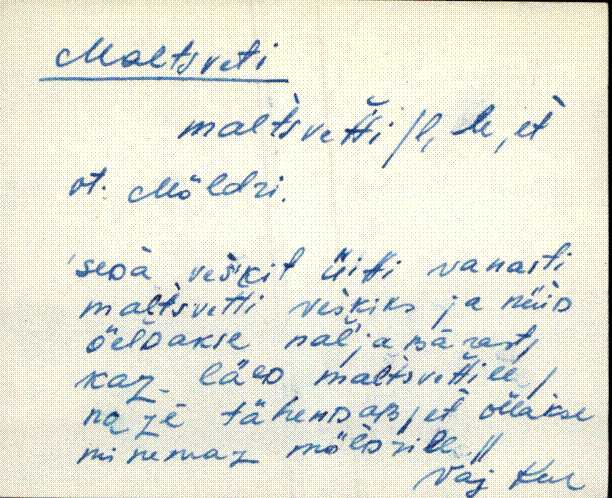 Maltsveti
maltsvetti /l, le, et
vt. Möldri.
seda veškit üitti vanasti
maltsvetti veškiks ja nüid
öeldakse nal'ja pärast,
kaz läed maltsvettile /
naz'e tähendab, et ollakse
minemaz möldrille //
Vaj